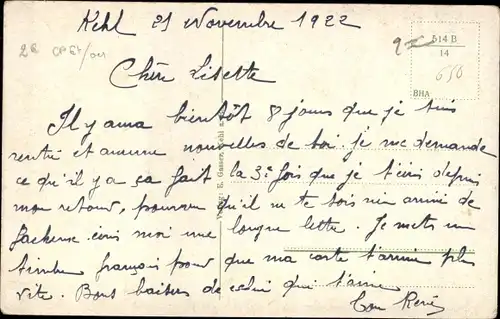 Kehl 21 Novembre 1922
514 B
14
650
BHA
Chère Lisette
Il y aura bientôt 8 jours que je suis
rentré et aucune nouvelles de toi. je me demande
ce qu'il y a ça fait la 3e fois que je t'écris depuis
mon retour, pourvu qu'il ne te sois rien arrivé de
facheux. écris moi une longue lettre. Je mets un
timbre français pour que ma carte t'arrive plus
vite. Bons baisers de celui qui t'aime
Ton René